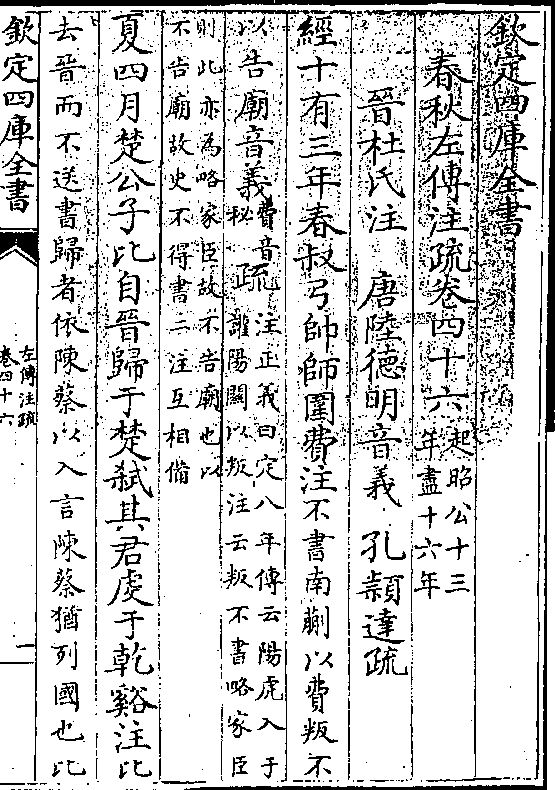 欽定四庫全書
春秋左傳注疏卷四十六
起昭公十三
年盡十六年
晉杜氏注 唐陸德明音義 孔穎達疏
經十有三年春叔弓帥師圍費注不書南蒯以費叛不
以告廟音義
費音
秘
疏
注正義曰定八年傳云陽虎入于
讙陽關以叛注云叛不書略家臣
則此亦為略家臣故不告廟也以
不告廟故史不得書二注互相備
夏四月楚公子比自晉歸于楚弒其君虔于乾谿注比
去晉而不送書歸者依陳蔡以入言陳蔡猶列國也比
欽定四庫全書
左傳注疏
卷四十六
一